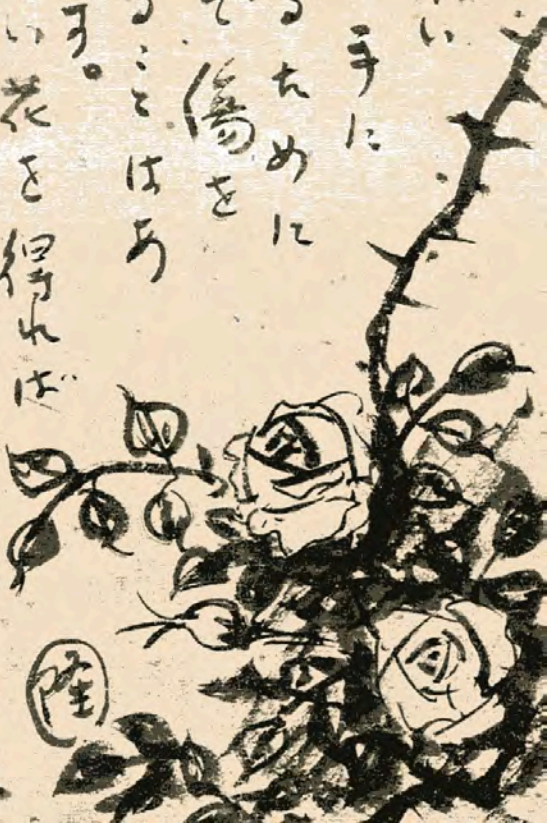 い
手に
るために
て傷を
ることはあ
す。
い花を得れば
隆